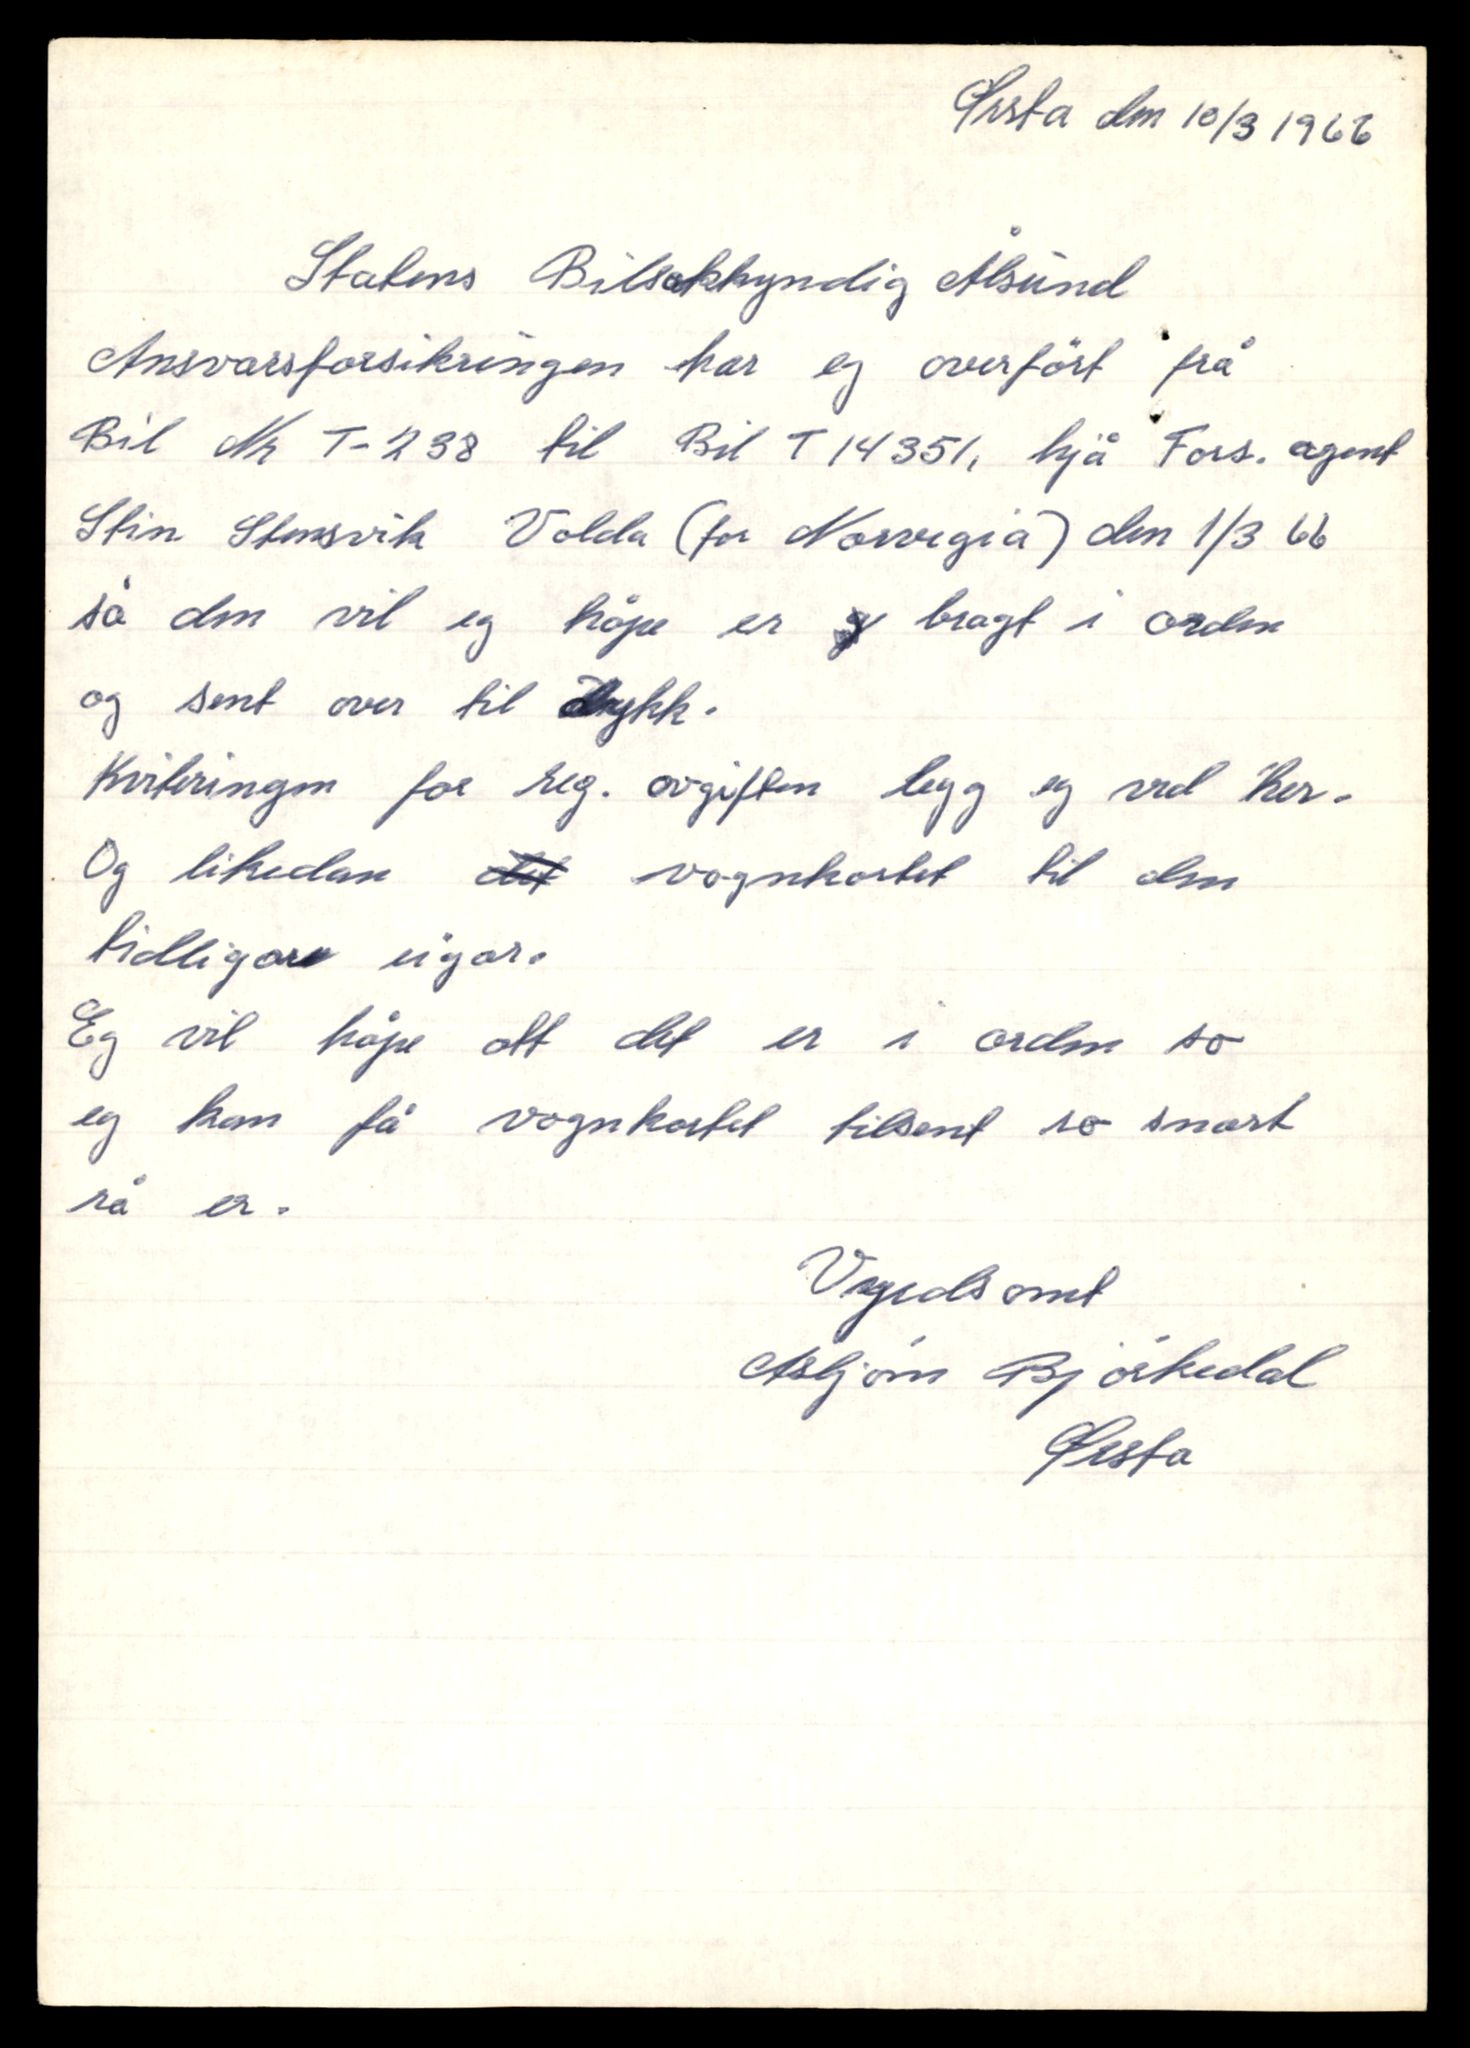 Ørsta den 10/3 1966
Statens Bilsakkyndig Ålsund
Ansvarsforsikringen har eg overført frå
Bil Nr T-238 til Bil T 14351, hjå Fors. agent
Stin Stensvik Volda (for Norvegia) den 1/3 66
så den vil eg håpe er bragt i orden
og sent over til dykk.
Kviteringen for reg. avgiften legg eg ved her.
Og likedan det vognkortet til den
tidligare eigar.
Eg vil håpe att det er i orden so
eg kan få vognkortet tilsent so snart
rå er.
Vyrdsamt
Asbjørn Bjørkedal
Ørsta